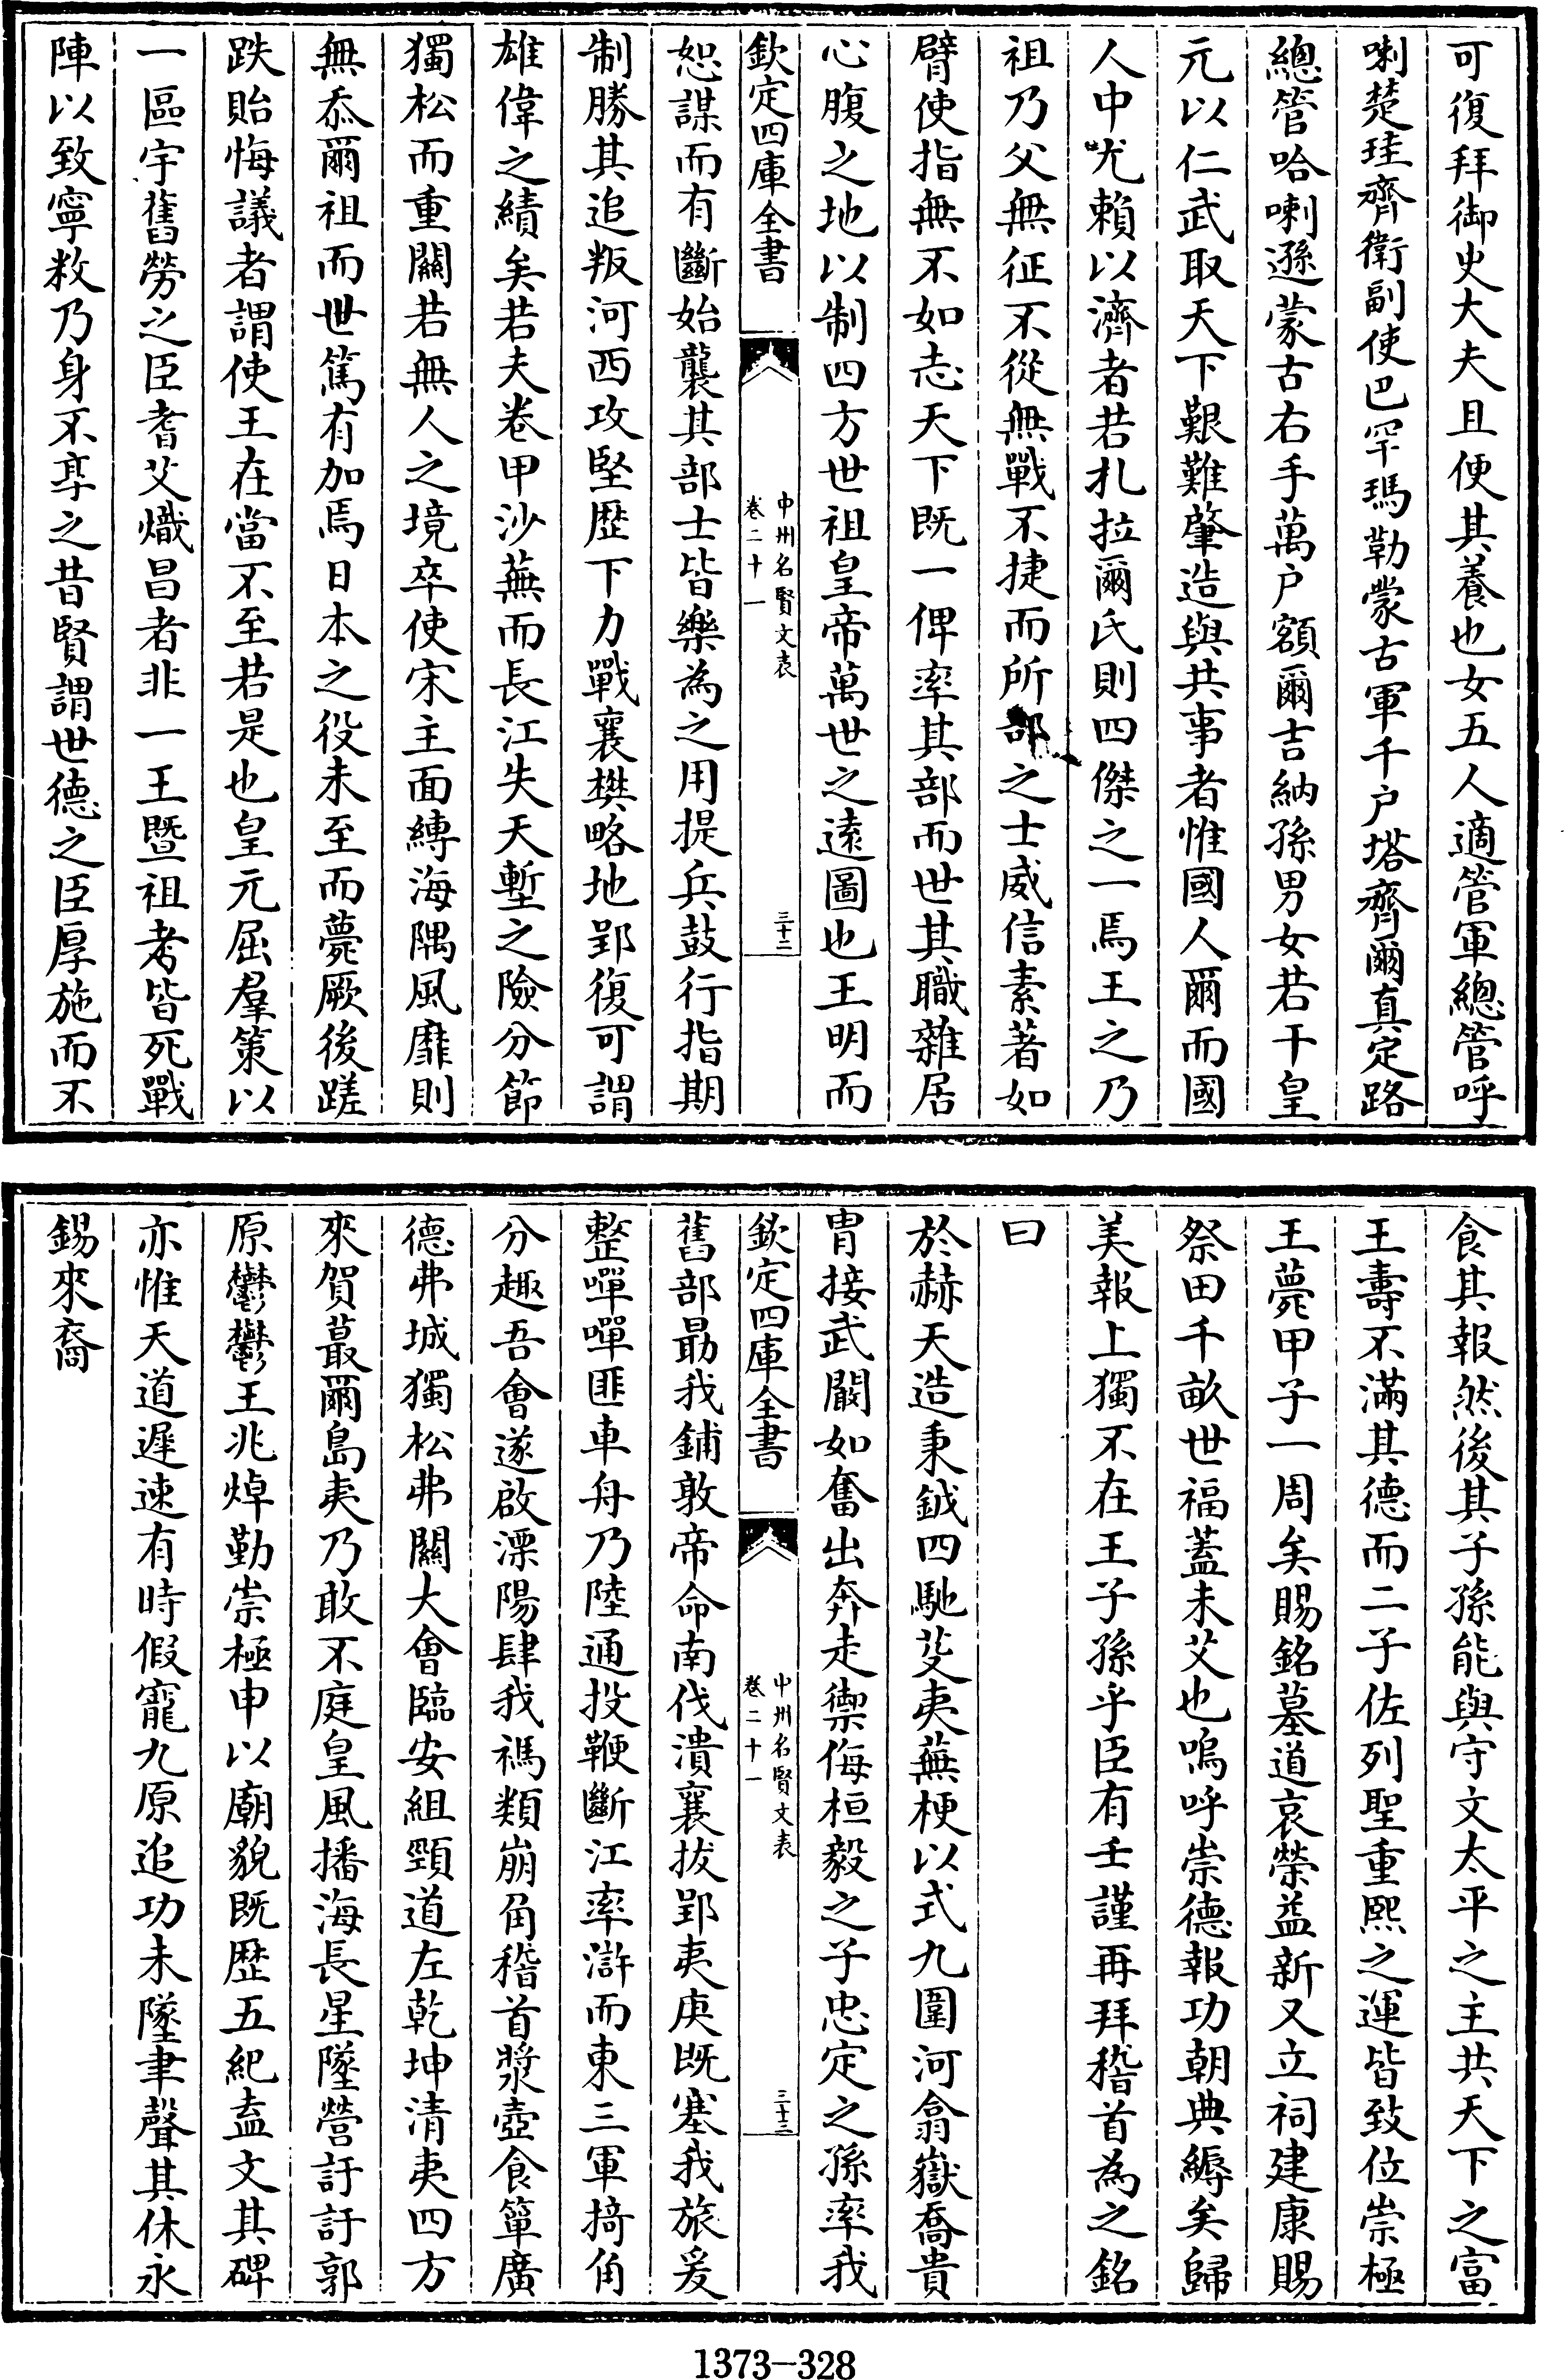 可復拜御史大夫且便其養也女五人適管軍總管呼
喇楚珪齊衛副使巴罕瑪勒蒙古軍千户塔齊爾真定路
總管哈喇遜蒙古右手萬户額爾吉納孫男女若干皇
元以仁武取天下艱難肇造與共事者惟國人爾而國
人中尤賴以濟者若扎拉爾氏則四傑之一焉王之乃
祖乃父無征不從無戰不捷而所部之士威信素著如
臂使指無不如志天下既一俾率其部而世其職雜居
心腹之地以制四方世祖皇帝萬世之遠圖也王明而
欽定四庫全書
中州名賢文表
卷二十一
三十二
恕謀而有斷始襲其部士皆樂為之用提兵鼓行指期
制勝其追叛河西攻堅歴下力戰襄樊略地郢復可謂
雄偉之績矣若夫卷甲沙蕪而長江失天塹之險分節
獨松而重關若無人之境卒使宋主面縛海隅風靡則
無忝爾祖而世篤有加焉日本之役未至而薨厥後蹉
跌貽悔議者謂使王在當不至若是也皇元屈羣策以
一區宇舊勞之臣耆艾熾昌者非一王暨祖考皆死戰
陣以致寧敉乃身不享之昔賢謂世德之臣厚施而不
食其報然後其子孫能與守文太平之主共天下之富
王壽不滿其德而二子佐列聖重熙之運皆致位崇極
王薨甲子一周矣賜銘墓道哀榮益新又立祠建康賜
祭田千畝世福蓋未艾也嗚呼崇德報功朝典縟矣歸
美報上獨不在王子孫乎臣有壬謹再拜稽首為之銘
曰
於赫天造秉鉞四馳芟夷蕪梗以式九圍河翕嶽喬貴
胄接武闞如奮出奔走禦侮桓毅之子忠定之孫率我
欽定四庫全書
中州名賢文表
卷二十一
三十三
舊部勗我鋪敦帝命南伐潰襄拔郢夷庚既塞我旅爰
整嘽嘽匪車舟乃陸通投鞭斷江率滸而東三軍掎角
分趣吾會遂啟溧陽肆我禡類崩角稽首漿壺食簞廣
德弗城獨松弗關大會臨安組頸道左乾坤清夷四方
來賀蕞爾島夷乃敢不庭皇風播海長星墜營訏訏郭
原鬱鬱王兆焯勤崇極申以廟貌既歴五紀盍文其碑
亦惟天道遲速有時假寵九原追功未墜聿聲其休永
錫來裔
1373-328